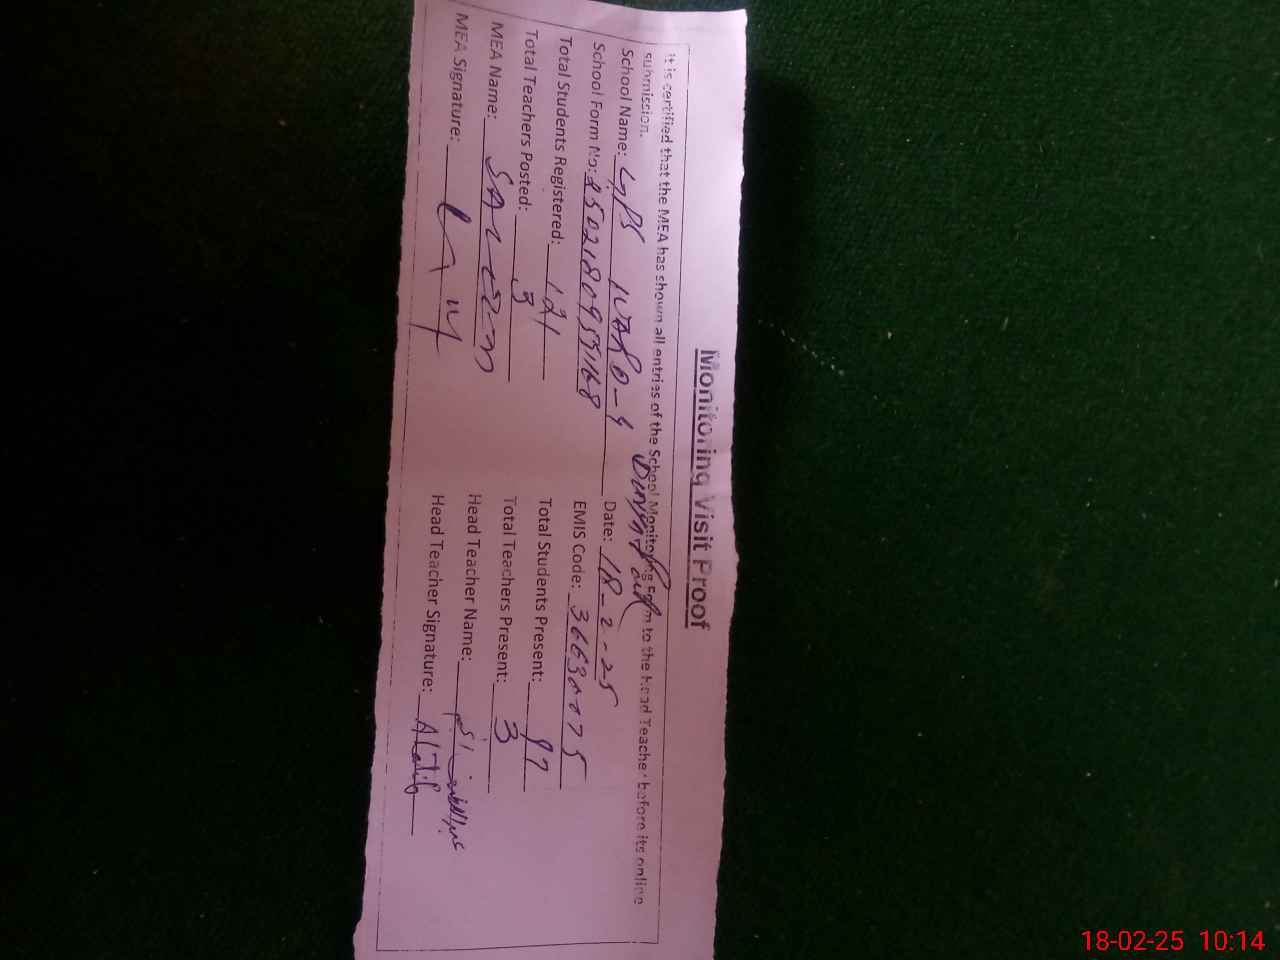 Monitoring Visit Proof
It is certified that the MEA has shown all entries of the School Monitoring Form to the Head Teacher before its online
submission.
School Name: GPS Date: 18-2-25
School Form No: EMIS Code: 36630075
Total Students Registered: 121 Total Students Present: 97
Total Teachers Posted: 3 Total Teachers Present: 3
MEA Name: SALEEM Head Teacher Name:
MEA Signature: Head Teacher Signature:
18-02-25 10:14